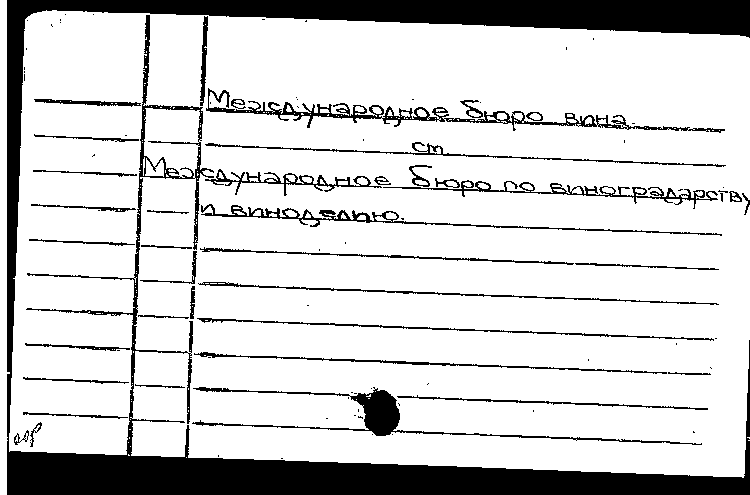 Международное бюро вина
см
Международное бюро по виноградарству
и виноделию.